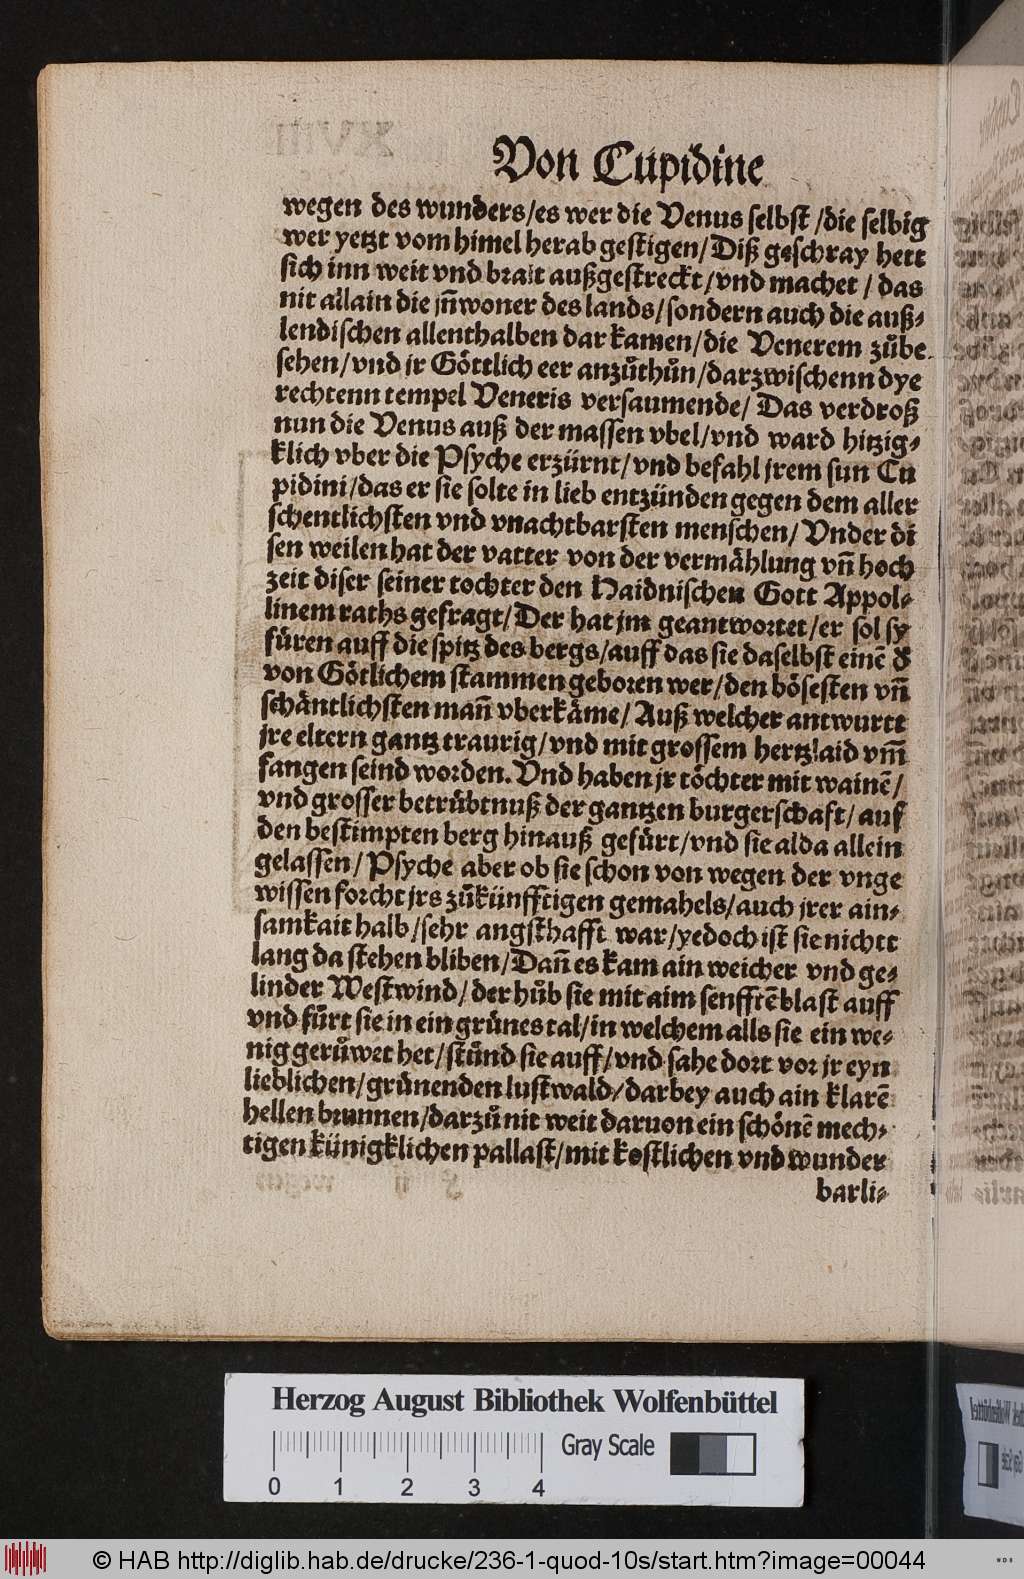 Von Cupidine
wegen des wunders/es wer die Venus selbst/die selbig
wer yetzt vom himel herab gestigen/Diß geschray hett
sich inn weit vnd brait außgestreckt/vnd machet/das
nit allain die jn̄woner des lands/sondern auch die auß⸗
lendischen allenthalben dar kamen/die Venerem zůbe
sehen/vnd jr Göttlich eer anzůthůn/darzwischenn dye
rechtenn tempel Veneris versaumende/Das verdroß
nun die Venus auß der massen vbel/vnd ward hitzig⸗
klich vber die Psyche erzürnt/vnd befahl jrem sun Cu
pidini/das er sie solte in lieb entzünden gegen dem aller
schentlichsten vnd vnachtbarsten menschen/Vnder di
sen weilen hat der vatter von der vermählung vn̄ hoch
zeit diser seiner tochter den Haidnischen Gott Appol⸗
linem raths gefragt/Der hat jm geantwortet/er sol sy
füren auff die spitz des bergs/auff das sie daselbst einē d̕
von Götlichem stammen geboren wer/den bösesten vn̄
schäntlichsten man̄ vberkäme/Auß welcher antwurtt
jre eltern gantz traurig/vnd mit grossem hertzlaid vm̄
fangen seind worden. Vnd haben jr töchter mit wainē/
vnd grosser betrübtnuß der gantzen burgerschaft/auf
den bestimpten berg hinauß gefürt/vnd sie alda allein
gelassen/Psyche aber ob sie schon von wegen der vnge
wissen forcht jrs zůkünfftigen gemahels/auch jrer ain⸗
samkait halb/sehr angsthafft war/yedoch ist sie nichtt
lang da stehen bliben/Dan̄ es kam ain weicher vnd ge⸗
linder Westwind/der hůb sie mit aim senfftē blast auff
vnd fürt sie in ein grünes tal/in welchem alls sie ein we⸗
nig gerůwet het/stůnd sie auff/vnd sahe dort vor jr eyn
lieblichen/grünenden lustwald/darbey auch ain klarē
hellen brunnen/darzů nit weit daruon ein schönē mech⸗
tigen künigklichen pallast/mit kostlichen vnd wunder
barli⸗
Herzog August Bibliothek Wolfenbüttel
0 1 2 3 4 Gray Scale
© HAB http://diglib.hab.de/drucke/236-1-quod-10s/start.htm?image=00044